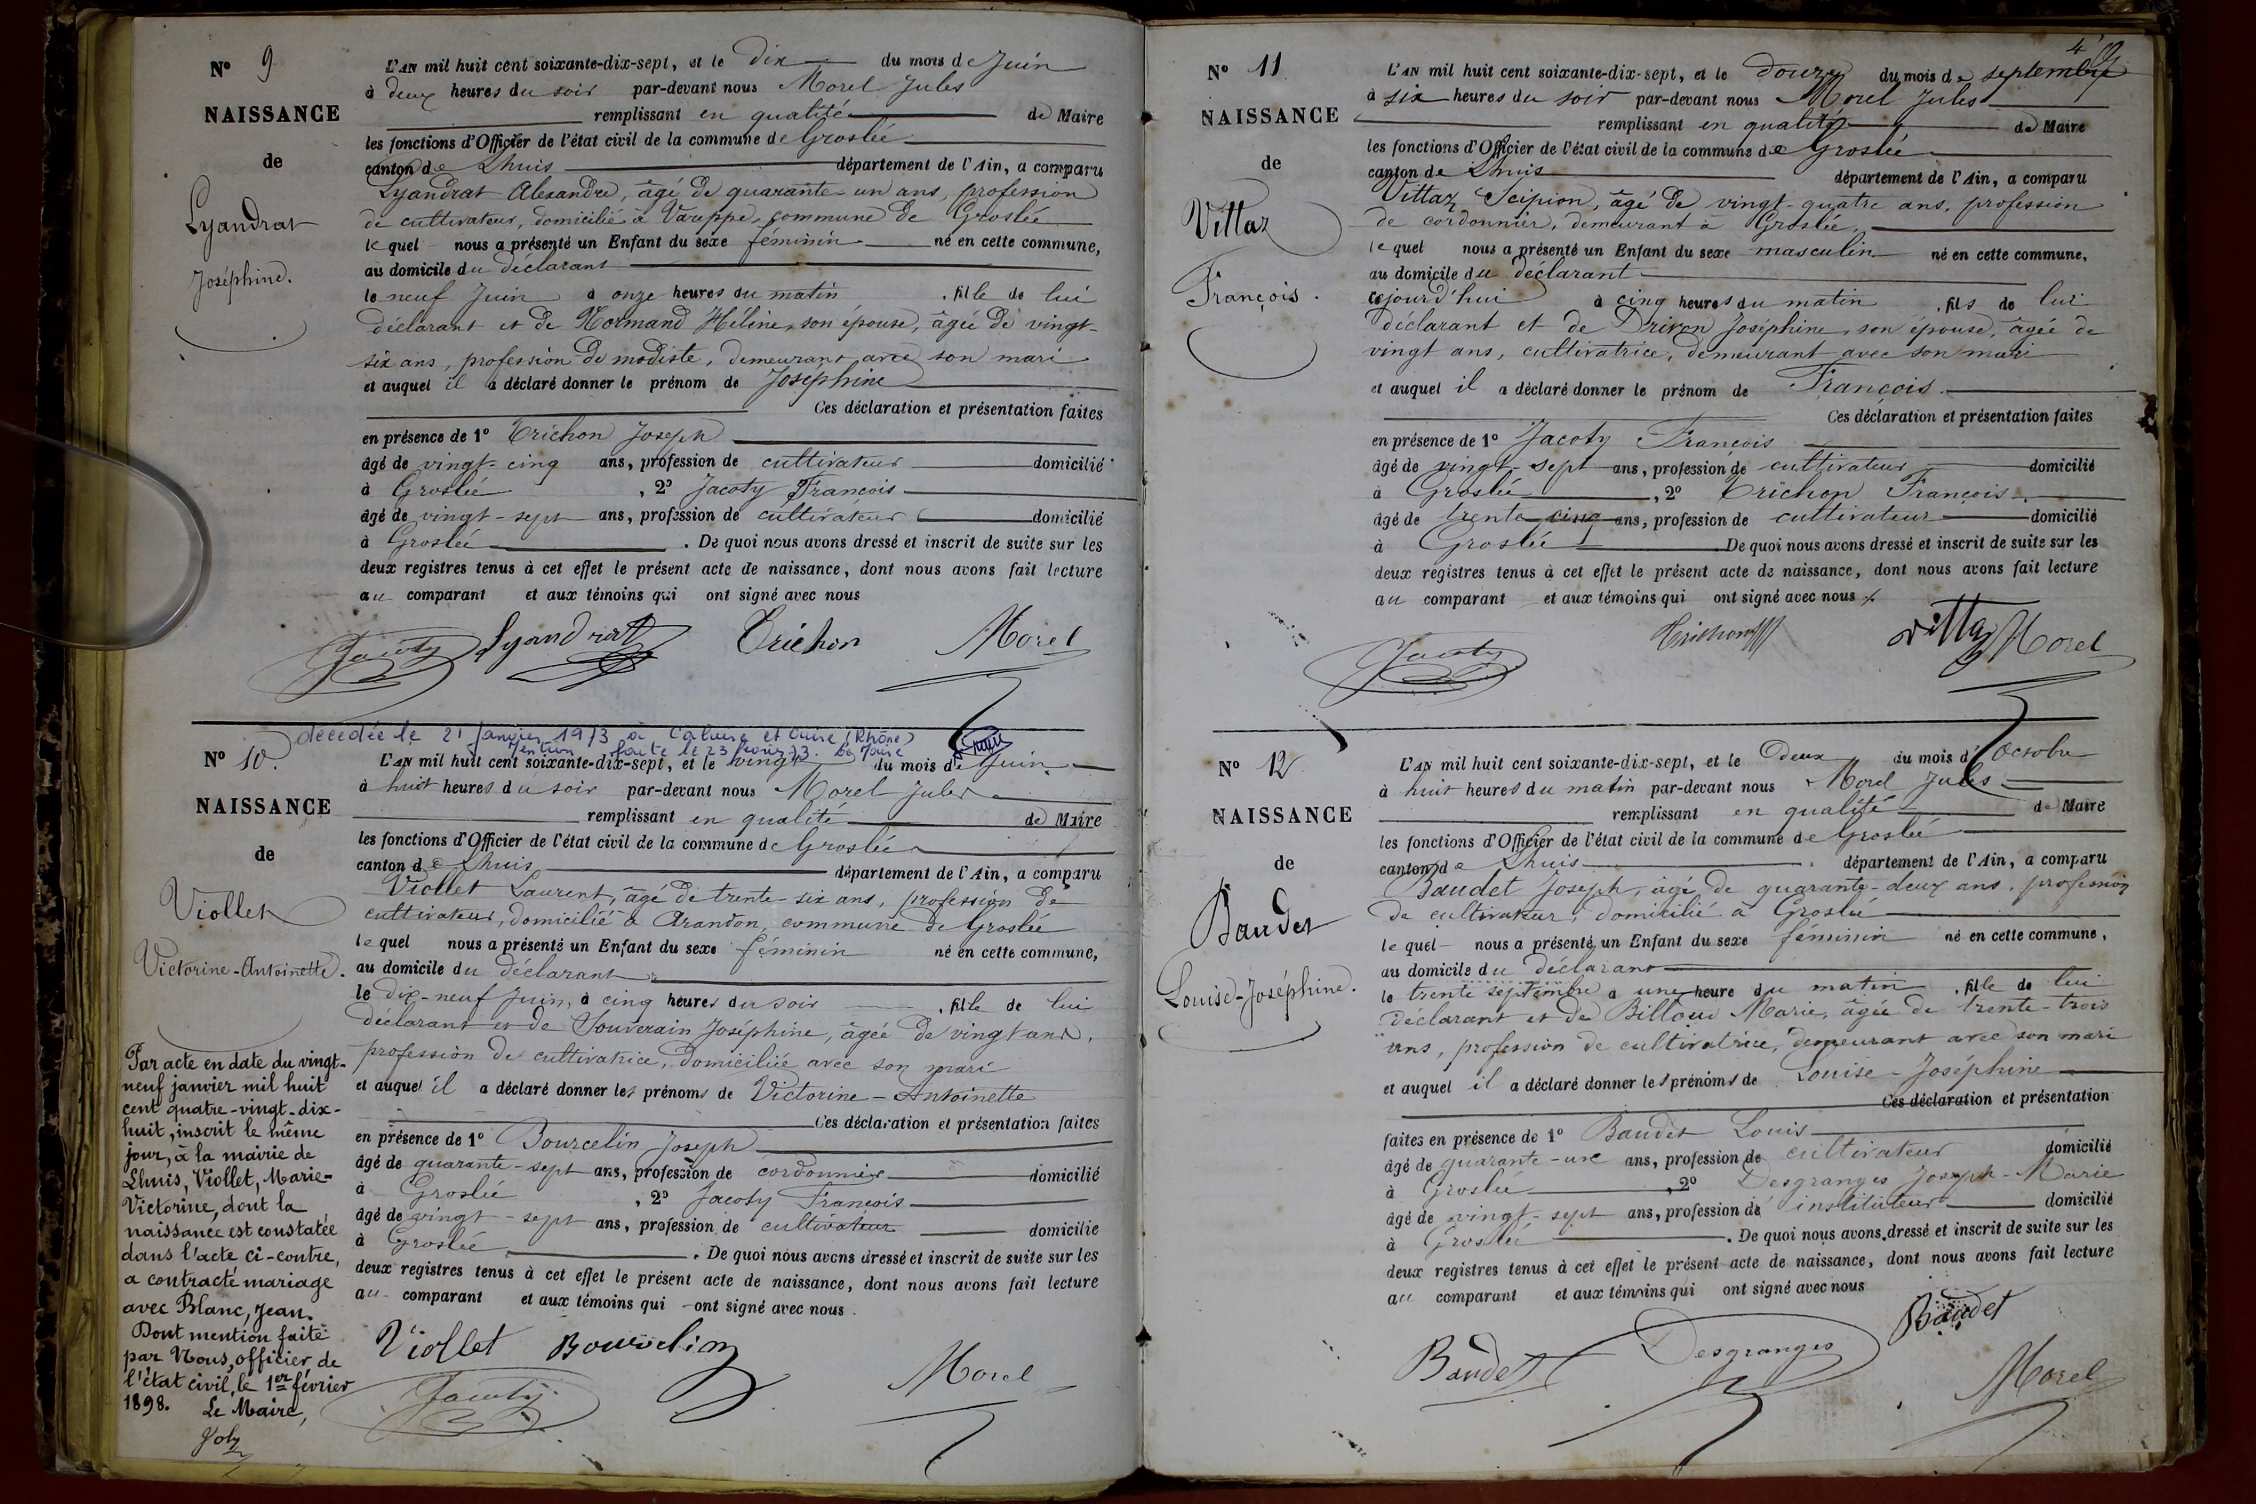 Nº 9
NAISSANCE
de
Lyandrat
Joséphine.
L'AN mil huit cent soixante-dix-sept, et le dix du mois de Juin
à deux heures du soir par-devant nous Morel Jules
remplissant en qualité de Maire
les fonctions d'Officier de l'état civil de la commune de Groslée
canton de Lhuis département de l'Ain, a comparu
Lyandrat Alexandre, âgé de quarante-un ans, profession
de cultivateur, domicilié à Vareppe, commune de Groslée
lequel nous a présenté un Enfant du sexe féminin né en cette commune,
au domicile du déclarant
le neuf Juin à onze heures du matin, fille de lui
déclarant et de Normand Hélène, son épouse, âgée de vingt-
six ans, profession de modiste, demeurant avec son mari
et auquel il a déclaré donner le prénom de Joséphine
Ces déclaration et présentation faites
en présence de 1º Trichon Joseph
âgé de vingt-cinq ans, profession de cultivateur domicilié
à Groslée, 2º Jacoty François
âgé de vingt-sept ans, profession de cultivateur domicilié
à Groslée. De quoi nous avons dressé et inscrit de suite sur les
deux registres tenus à cet effet le présent acte de naissance, dont nous avons fait lecture
au comparant et aux témoins qui ont signé avec nous
Jacoty Lyandrat Trichon Morel
décédée le 21 janvier 1973 à Caluire et Cuire (Rhône)
Mention faite le 23 . Le Maire
Nº 10.
NAISSANCE
de
Viollet
Victorine-Antoinette.
L'AN mil huit cent soixante-dix-sept, et le vingt du mois de Juin
à huit heures du soir par-devant nous Morel Jules
remplissant en qualité de Maire
les fonctions d'Officier de l'état civil de la commune de Groslée
canton de Lhuis département de l'Ain, a comparu
Viollet Laurent, âgé de trente-six ans, profession de
cultivateur, domicilié à Arandon, commune de Groslée
lequel nous a présenté un Enfant du sexe féminin né en cette commune,
au domicile du déclarant
le dix-neuf Juin, à cinq heures du soir, fille de lui
déclarant et de Souverain Joséphine, âgée de vingt ans,
profession de cultivatrice, domiciliée avec son mari
et auquel il a déclaré donner les prénoms de Victorine-Antoinette
Ces déclaration et présentation faites
en présence de 1º Bourcelin Joseph
âgé de quarante-sept ans, profession de cordonnier domicilié
à Groslée, 2º Jacoty François
âgé de vingt-sept ans, profession de cultivateur domicilié
à Groslée. De quoi nous avons dressé et inscrit de suite sur les
deux registres tenus à cet effet le présent acte de naissance, dont nous avons fait lecture
au comparant et aux témoins qui ont signé avec nous.
Viollet Bourcelin
Jacoty Morel
Par acte en date du vingt-
neuf janvier mil huit
cent quatre-vingt-dix-
huit, inscrit le même
jour, à la mairie de
Lhuis, Viollet, Marie-
Victorine, dont la
naissance est constatée
dans l'acte ci-contre,
a contracté mariage
avec Blanc, Jean.
Dont mention faite
par Nous, officier de
l'état civil, le 1er février
1898. Le Maire,
Joly
Nº 11
NAISSANCE
de
Vittaz
François.
L'AN mil huit cent soixante-dix-sept, et le douze du mois de septembre
à six heures du soir par-devant nous Morel Jules
remplissant en qualité de Maire
les fonctions d'Officier de l'état civil de la commune de Groslée
canton de Lhuis département de l'Ain, a comparu
Vittaz Scipion, âgé de vingt-quatre ans, profession
de cordonnier, demeurant à Groslée,
lequel nous a présenté un Enfant du sexe masculin né en cette commune,
au domicile du déclarant
cejourd'hui à cinq heures du matin, fils de lui
déclarant et de Drivon Joséphine, son épouse, âgée de
vingt ans, cultivatrice, demeurant avec son mari
et auquel il a déclaré donner le prénom de François
Ces déclaration et présentation faites
en présence de 1º Jacoty François
âgé de vingt-sept ans, profession de cultivateur domicilié
à Groslée, 2º Trichon François
âgé de trente cinq ans, profession de cultivateur domicilié
à Groslée. De quoi nous avons dressé et inscrit de suite sur les
deux registres tenus à cet effet le présent acte de naissance, dont nous avons fait lecture
au comparant et aux témoins qui ont signé avec nous
Jacoty Trichon Vittaz Morel
Nº 12
NAISSANCE
de
Baudet
Louise-Joséphine.
L'AN mil huit cent soixante-dix-sept, et le Deux du mois d'Octobre
à huit heures du matin par-devant nous Morel Jules
remplissant en qualité de Maire
les fonctions d'Officier de l'état civil de la commune de Groslée
canton de Lhuis département de l'Ain, a comparu
Baudet Joseph, âgé de quarante-deux ans, profession
de cultivateur, domicilié à Groslée
lequel nous a présenté un Enfant du sexe féminin né en cette commune,
au domicile du déclarant
le trente septembre à une heure du matin, fille de lui
déclarant et de Billoud Marie, âgée de trente-trois
ans, profession de cultivatrice, demeurant avec son mari
et auquel il a déclaré donner les prénoms de Louise-Joséphine
Ces déclaration et présentation
faites en présence de 1º Baudet Louis
âgé de quarante-un ans, profession de cultivateur domicilié
à Groslée, 2º Desgranges Joseph-Marie
âgé de vingt-sept ans, profession de instituteur domicilié
à Groslée. De quoi nous avons dressé et inscrit de suite sur les
deux registres tenus à cet effet le présent acte de naissance, dont nous avons fait lecture
au comparant et aux témoins qui ont signé avec nous
Baudet Desgranges Baudet
Morel